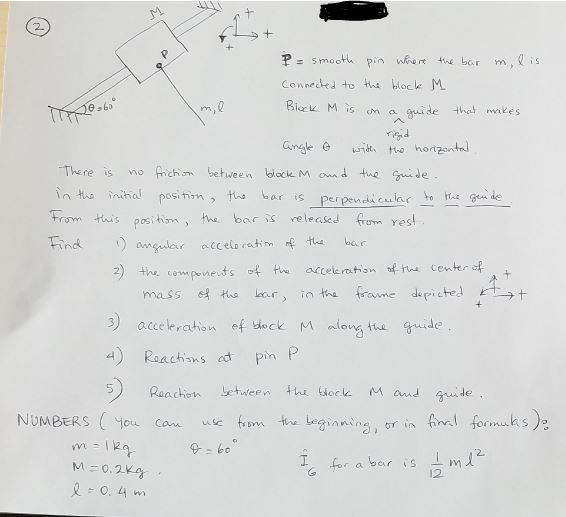 2
M
+
+
+
P
θ = 60°
m, l
P = smooth pin where the bar m, l is
connected to the block M
Block M is on a rigid guide that makes
angle θ with the horizontal.
There is no friction between block M and the guide.
in the initial position, the bar is perpendicular to the guide
From this position, the bar is released from rest.
Find 1) angular acceleration of the bar
2) the components of the acceleration of the center of
mass of the bar, in the frame depicted + + +
3) acceleration of block M along the guide.
4) Reactions at pin P
5) Reaction between the block M and guide.
NUMBERS (you can use from the beginning, or in final formulas):
m = 1 kg θ = 60°
M = 0.2 kg. I_G for a bar is 1/12 m l²
l = 0.4 m